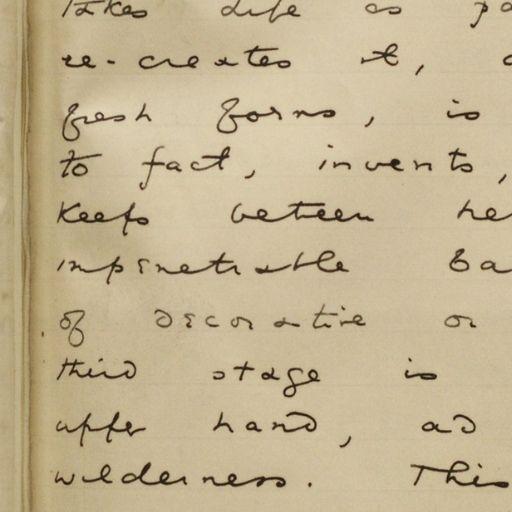 takes life as pa
re-creates it, a
fresh forms, is
to fact, invents,
keeps between he
impenetrable ba
of decorative or
third stage is
upper hand, ad
wilderness. This